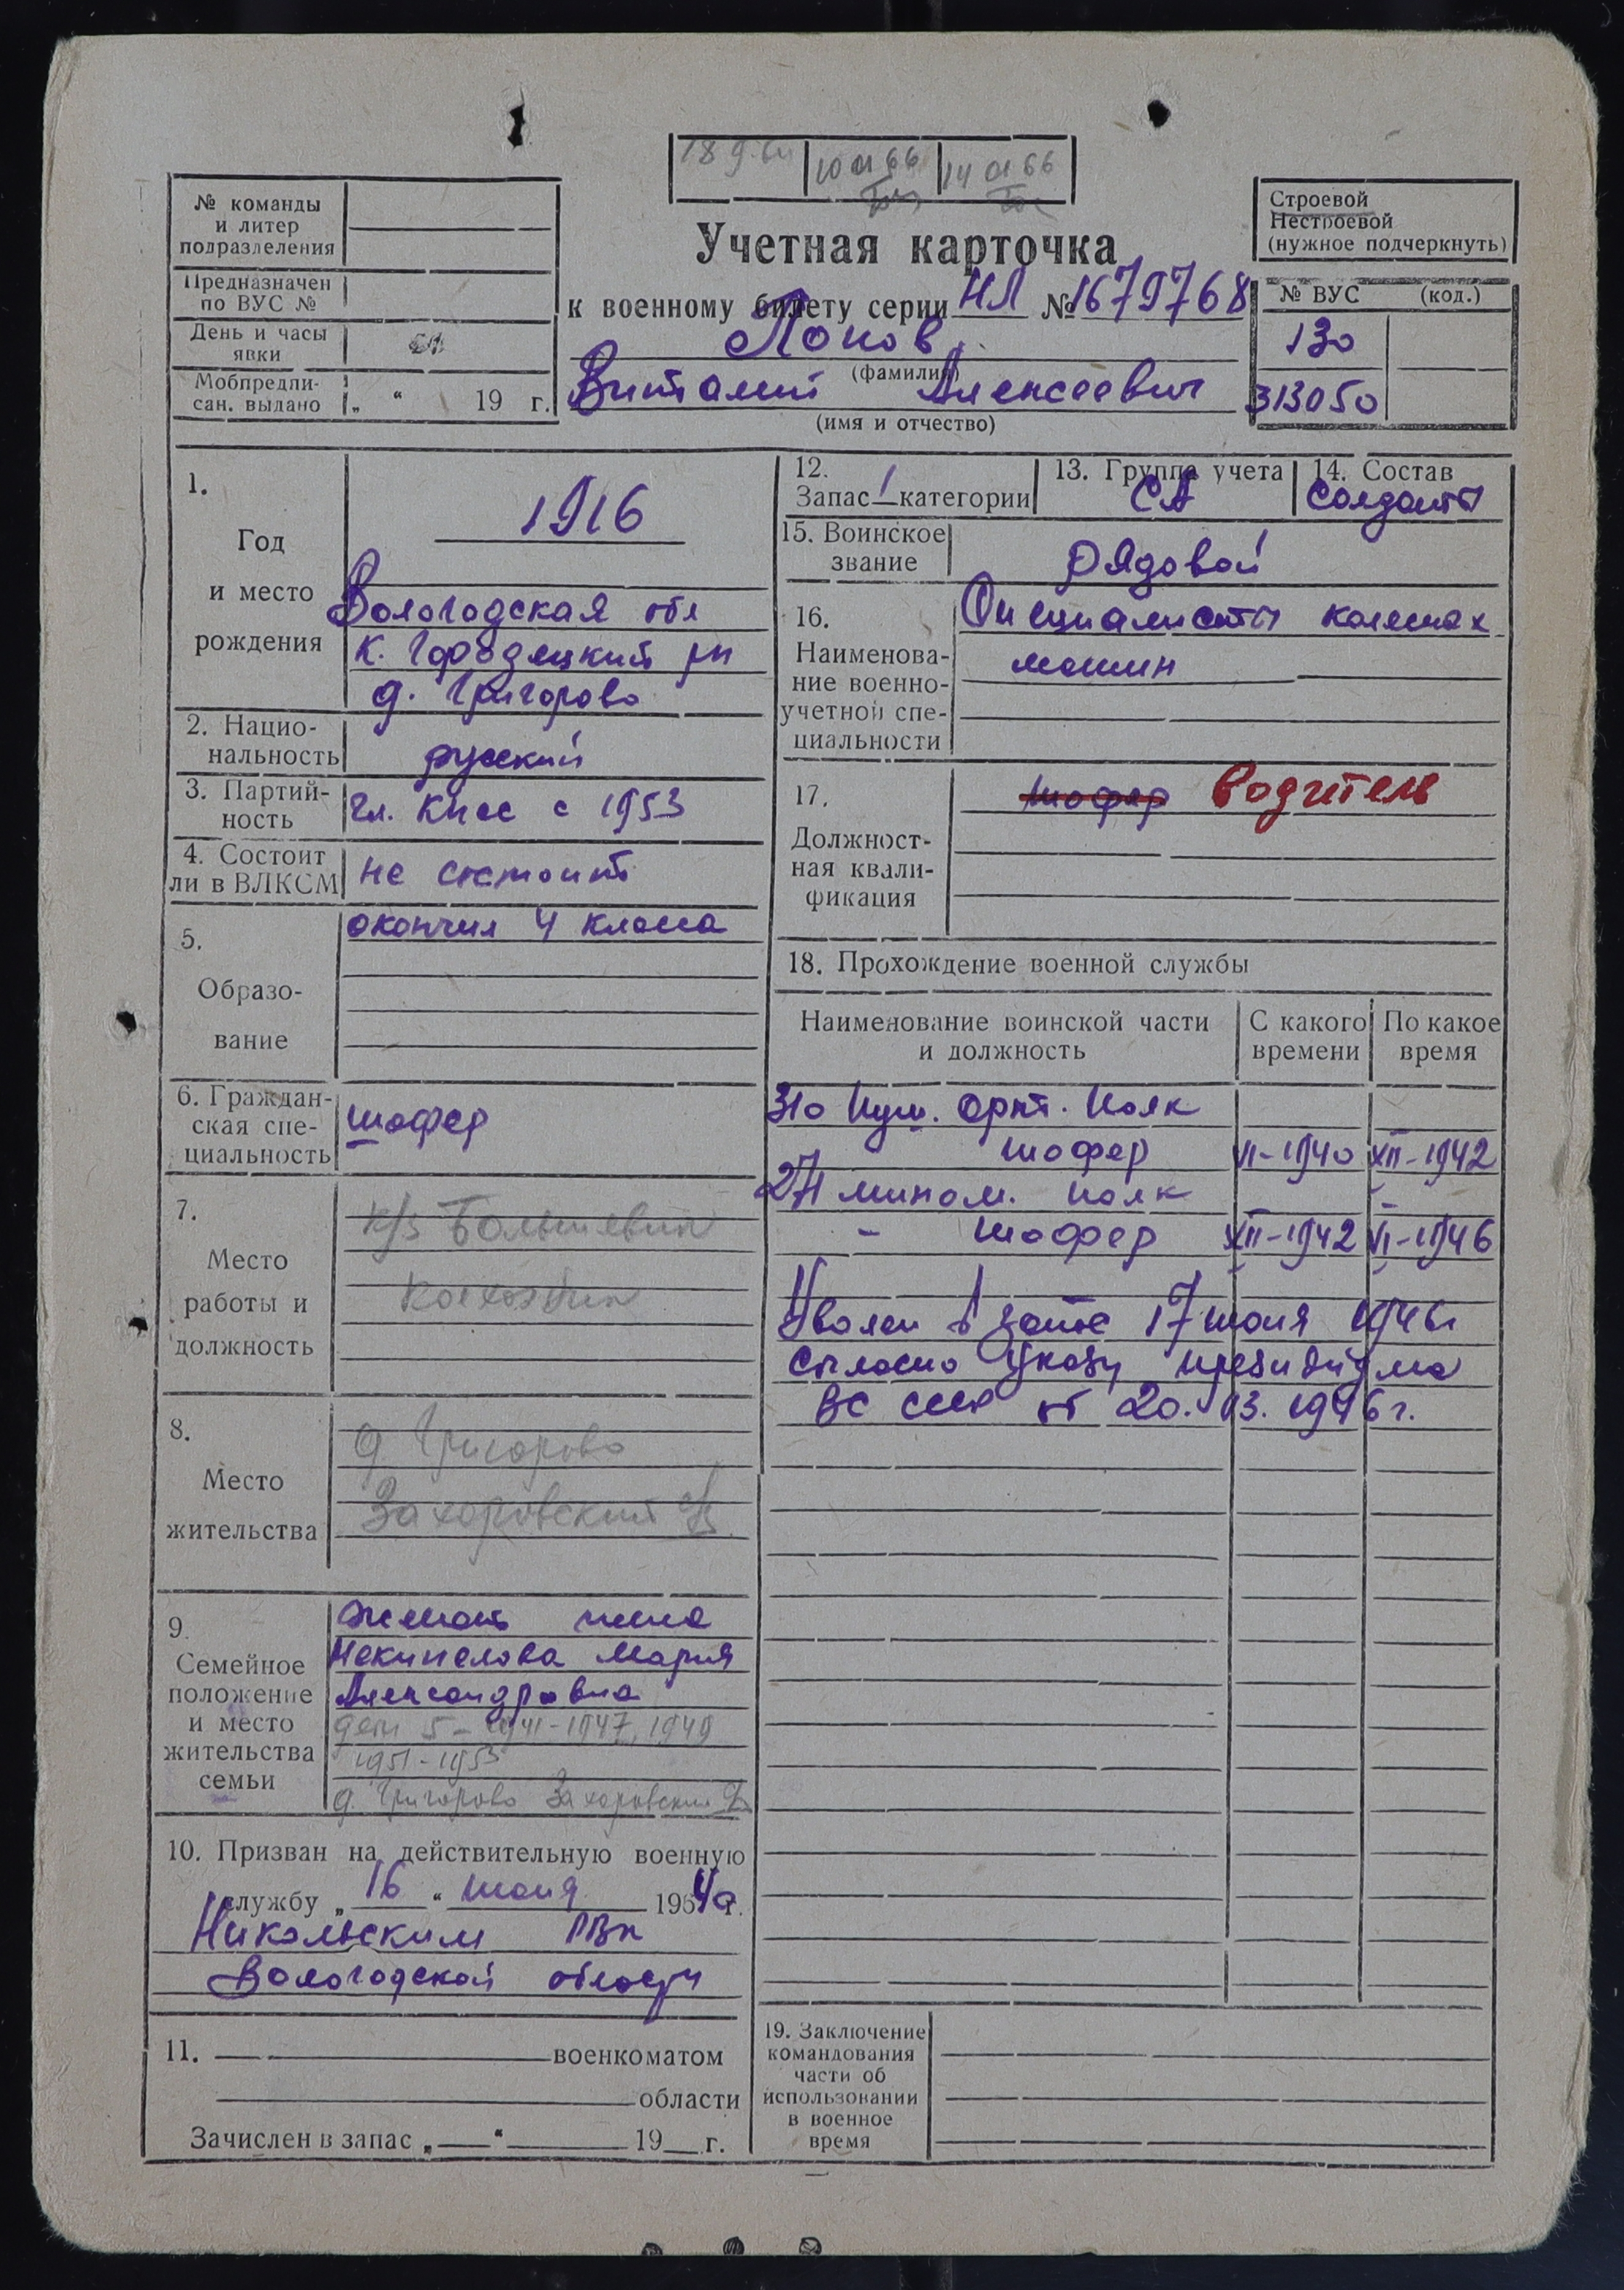 18 9.64 10 01 66 14 01 66
№ команды
и литер
подразделения
Предназначен
по ВУС №
День и часы
явки
Мобпредпи-
сан. выдано „ “ 19 г.
Учетная карточка
к военному билету серии НЛ № 1679768
Попов
(фамилия)
Виталий Алексеевич
(имя и отчество)
Строевой
Нестроевой
(нужное подчеркнуть)
№ ВУС (код.)
130
313050
1.
Год
и место
рождения
1916
Вологодская обл
К. Городецкий рн
д. Григорово
2. Нацио-
нальность
русский
3. Партий-
ность
чл. КПСС с 1953
4. Состоит
ли в ВЛКСМ
не состоит
5.
Образо-
вание
окончил 4 класса
6. Граждан-
ская спе-
циальность
шофер
7.
Место
работы и
должность
к/з Большевик
колхозник
8.
Место
жительства
д Григорово
Захаровский с/с
9.
Семейное
положение
и место
жительства
семьи
женат жена
Некипелова Мария
Александровна
дети 5 - 1941 - 1947, 1949
1951 - 1953
д. Григорово Захаровский с/с
10. Призван на действительную военную
службу „ 16 “ июня 1940 г.
Никольским РВК
Вологодской области
11. военкоматом
области
Зачислен в запас „ “ 19 г.
12.
Запас 1 категории
13. Группа учета
СА
14. Состав
солдаты
15. Воинское
звание
рядовой
16.
Наименова-
ние военно-
учетной спе-
циальности
Специалисты колесных
машин
17.
Должност-
ная квали-
фикация
шофер Водитель
18. Прохождение военной службы
Наименование воинской части
и должность
С какого
времени
По какое
время
310 Пуш. арт. полк
шофер VI-1940 XII-1942
27 мином. полк
- шофер XII-1942 VI-1946
Уволен в запас 17 июня 1946г
согласно Указу президиума
ВС СССР от 20.03.1946 г.
19. Заключение
командования
части об
использовании
в военное
время